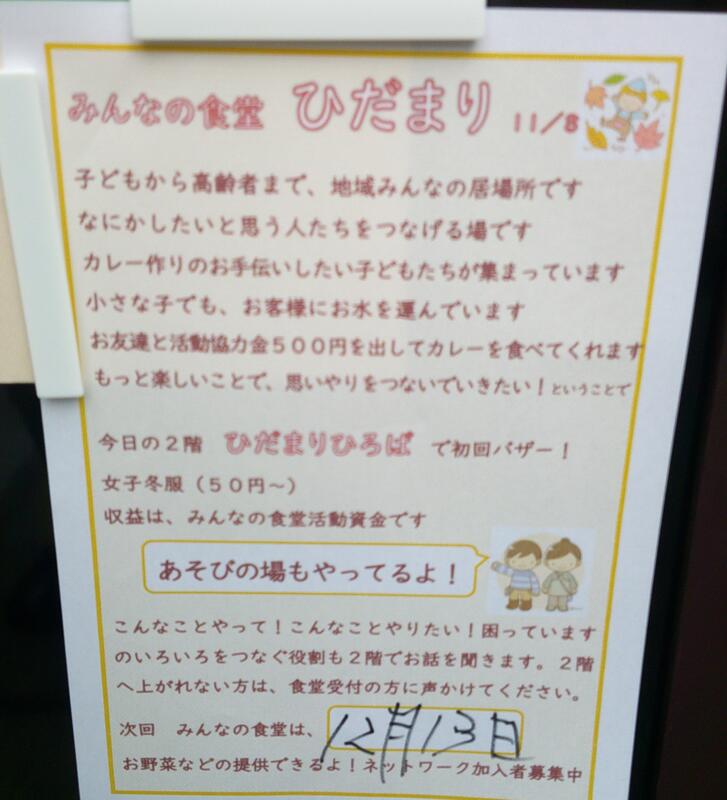 みんなの食堂 ひだまり 11/8
子どもから高齢者まで、地域みんなの居場所です
なにかしたいと思う人たちをつなげる場です
カレー作りのお手伝いしたい子どもたちが集まっています
小さな子でも、お客様にお水を運んでいます
お友達と活動協力金500円を出してカレーを食べてくれます
もっと楽しいことで、思いやりをつないでいきたい！ということで
今日の2階 ひだまりひろば で初回バザー！
女子冬服（50円～）
収益は、みんなの食堂活動資金です
あそびの場もやってるよ！
こんなことやって！こんなことやりたい！困っています
のいろいろをつなぐ役割も2階でお話を聞きます。2階
へ上がれない方は、食堂受付の方に声かけてください。
次回 みんなの食堂は、12月13日
お野菜などの提供できるよ！ネットワーク加入者募集中